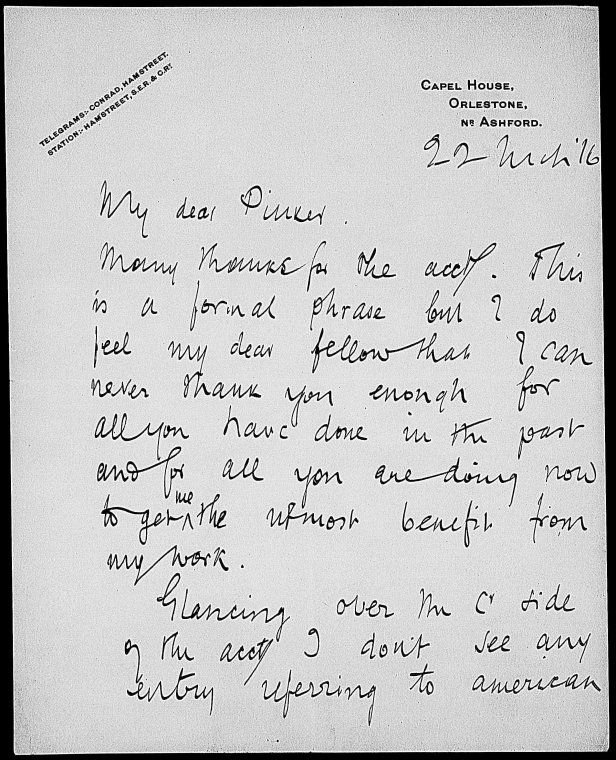 TELEGRAMS:- CONRAD, HAMSTREET.
STATION:- HAMSTREET, S.E.R. & C.RY.
CAPEL HOUSE,
ORLESTONE,
NR ASHFORD.
22 Mch '16
My dear Pinker.
Many thanks for the acct. This
is a formal phrase but I do
feel my dear fellow that I can
never thank you enough for
all you have done in the past
and for all you are doing now
to get me the utmost benefit from
my work.
Glancing over the Cr side
of the acct I don't see any
entry referring to american